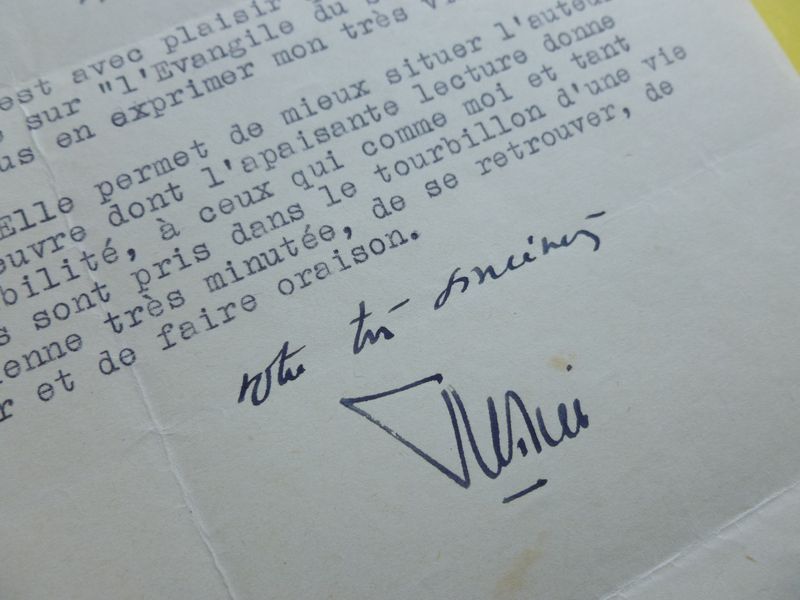 est avec plaisir
sur "l'Evangile du
us en exprimer mon très
Elle permet de mieux situer l'auteur
euvre dont l'apaisante lecture donne
bilité, à ceux qui comme moi et tant
s sont pris dans le tourbillon d'une vie
ienne très minutée, de se retrouver, de
r et de faire oraison.
votre très sincères